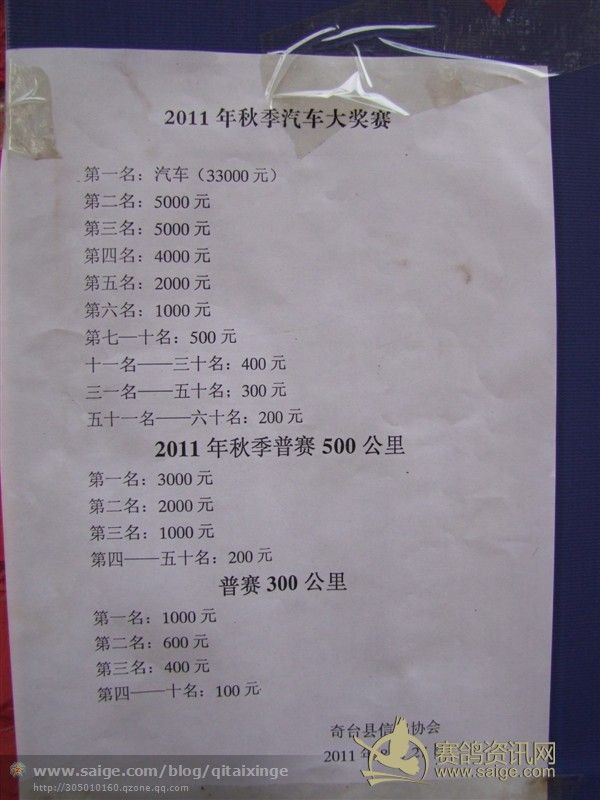 2011 年秋季汽车大奖赛
第一名：汽车（33000 元）
第二名：5000 元
第三名：5000 元
第四名：4000 元
第五名：2000 元
第六名：1000 元
第七—十名：500 元
十一名——三十名：400 元
三一名——五十名；300 元
五十一名——六十名：200 元
2011 年秋季普赛 500 公里
第一名：3000 元
第二名：2000 元
第三名：1000 元
第四——五十名：200 元
普赛 300 公里
第一名：1000 元
第二名：600 元
第三名：400 元
第四——十名：100 元
奇台县信 协会
2011 年
www.saige.com/blog/qitaixinge
http://305010160.qzone.qq.com
赛鸽资讯网
www.saige.com